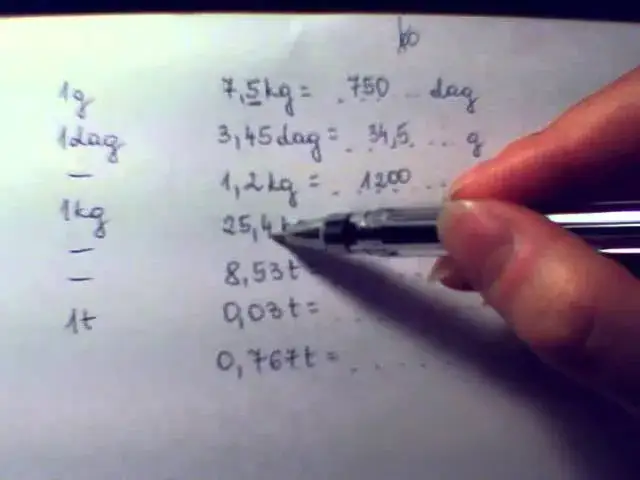 1g 7,5kg = . 750 . . dag
1dag 3,45dag = . 34,5 . . . g
— 1,2kg = . 1200 . .
1kg 25,4
—
— 8,53t =
1t 0,03t = . . .
0,767t = . . . . .